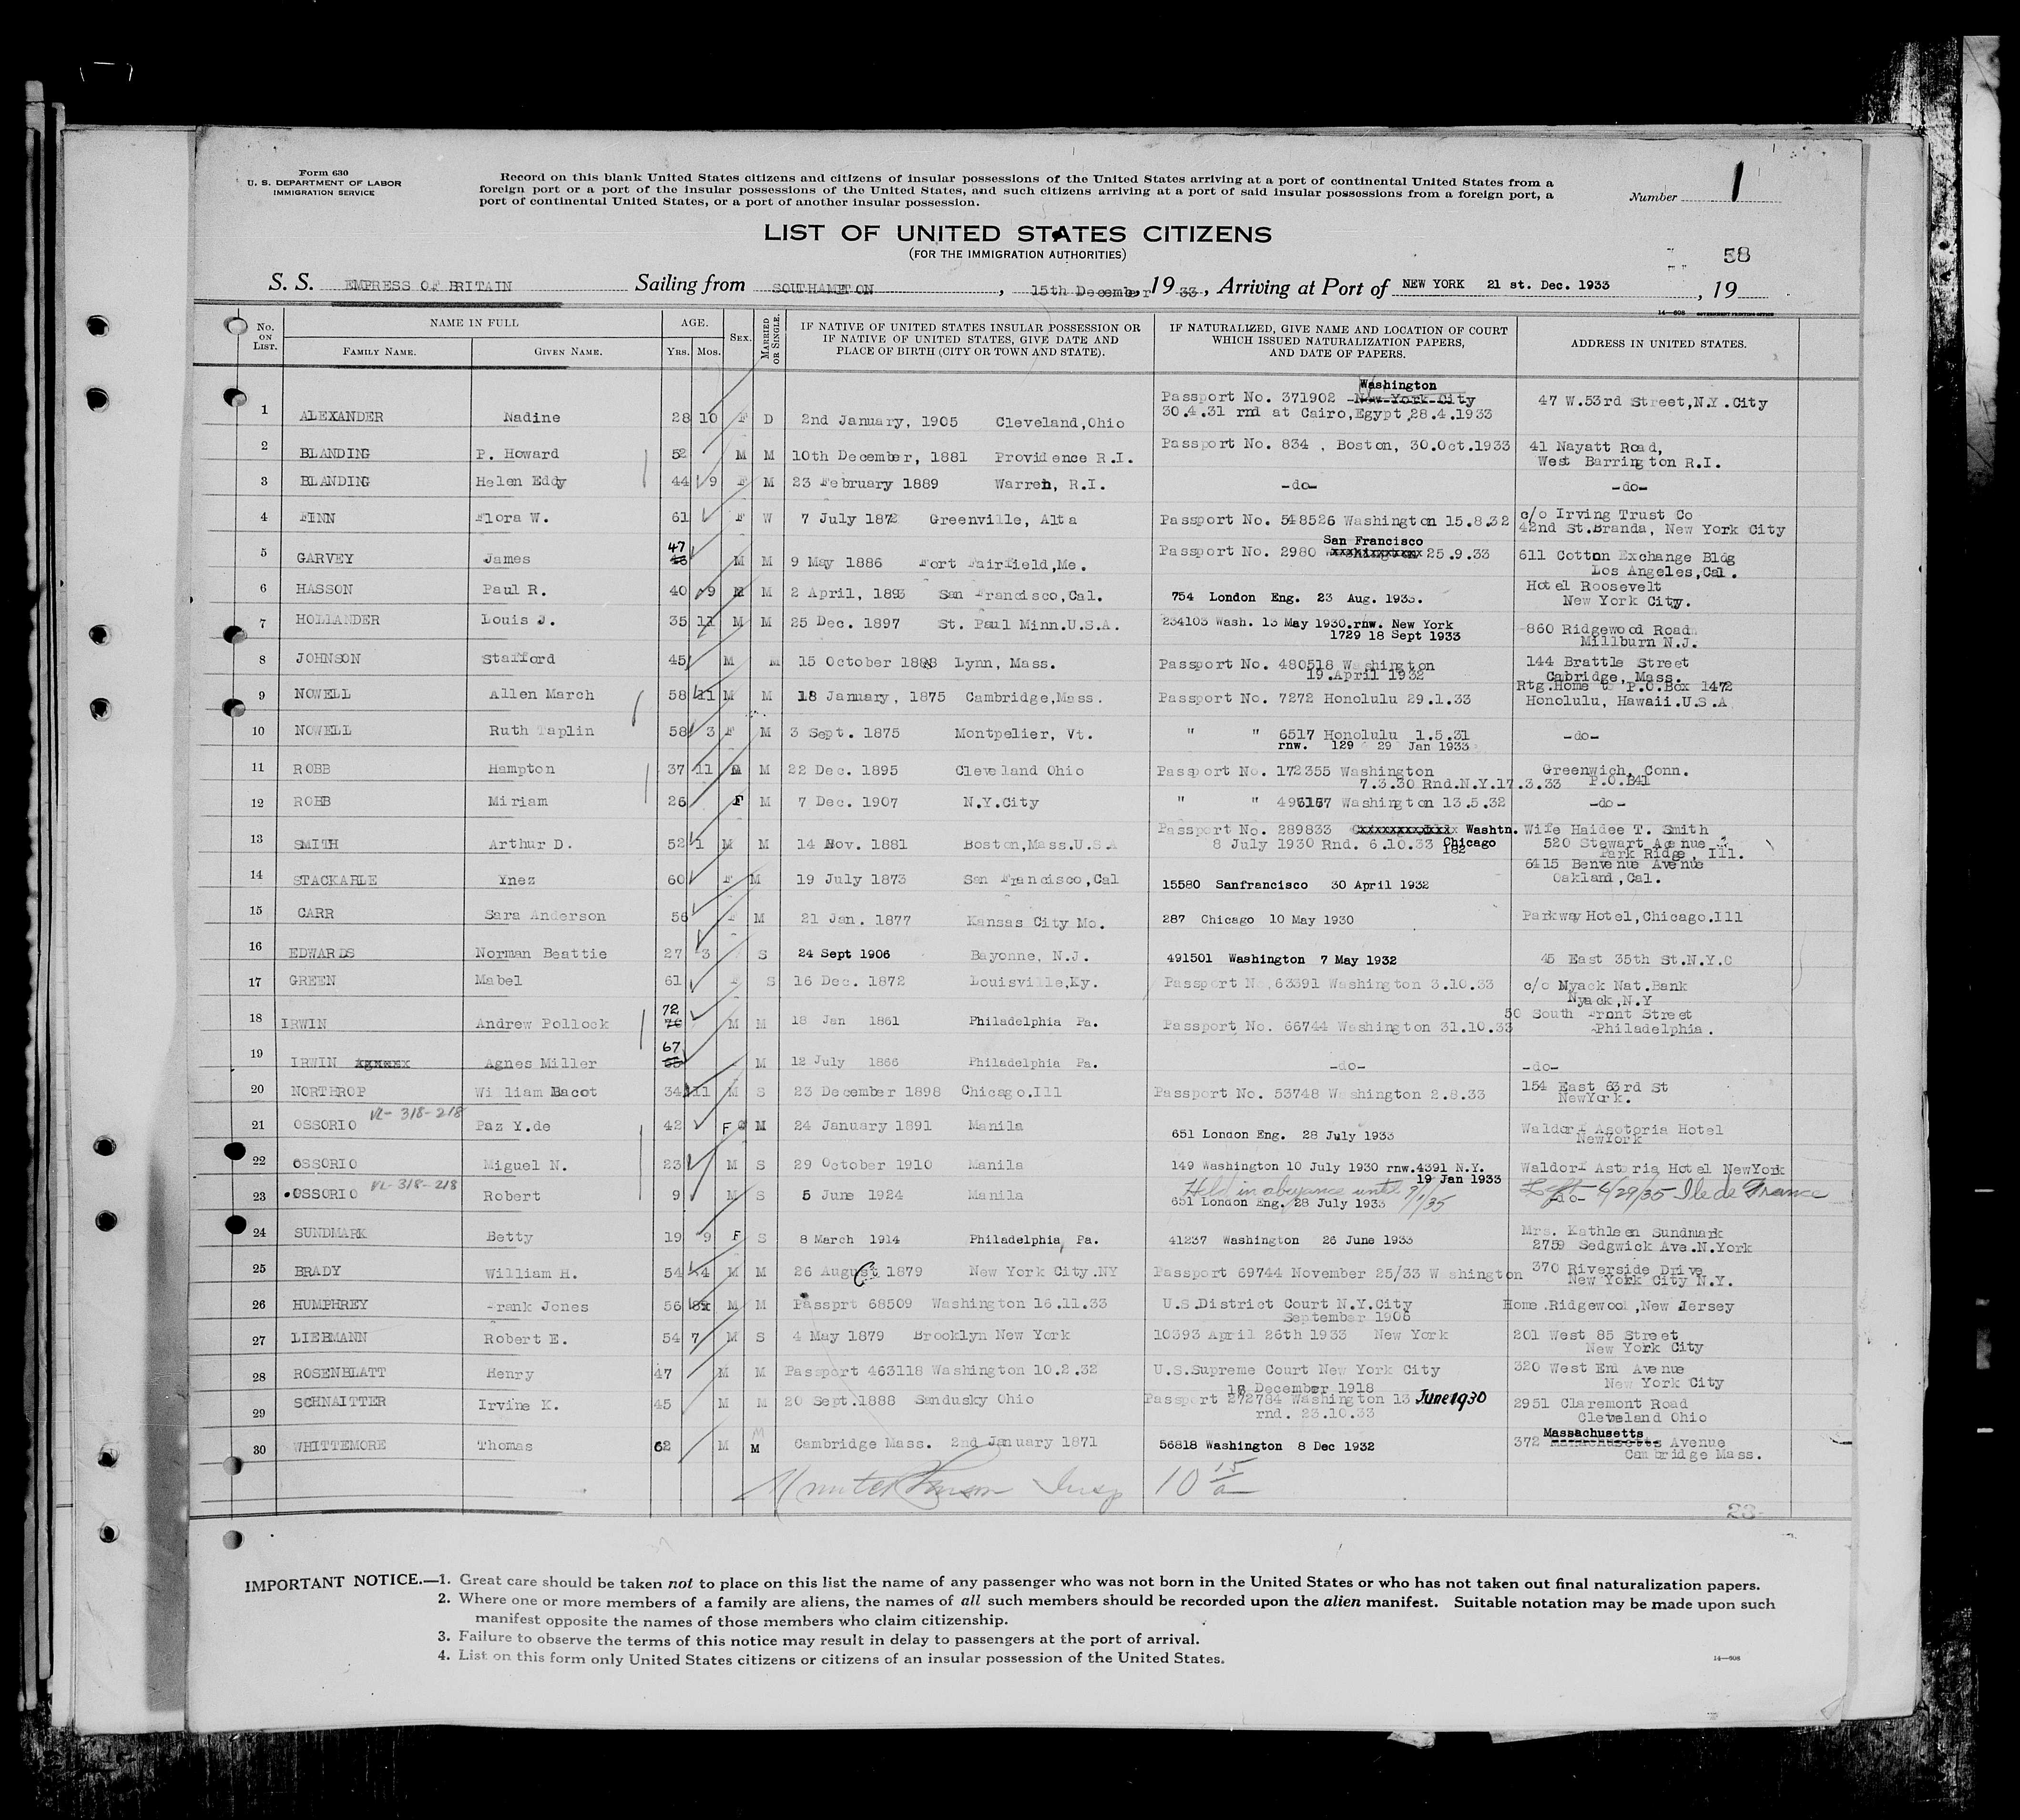 Form 630
U. S. DEPARTMENT OF LABOR
IMMIGRATION SERVICE
Record on this blank United States citizens and citizens of insular possessions of the United States arriving at a port of continental United States from a
foreign port or a port of the insular possessions of the United States, and such citizens arriving at a port of said insular possessions from a foreign port, a
port of continental United States, or a port of another insular possession.
Number 1
LIST OF UNITED STATES CITIZENS
(FOR THE IMMIGRATION AUTHORITIES)
58
S. S. EMPRESS OF BRITAIN Sailing from SOUTHAMPTON, 15th December, 19 33, Arriving at Port of NEW YORK 21 st. Dec. 1933, 19
14—608 GOVERNMENT PRINTING OFFICE
No. ON LIST. NAME IN FULL AGE. SEX. MARRIED OR SINGLE. IF NATIVE OF UNITED STATES INSULAR POSSESSION OR IF NATIVE OF UNITED STATES, GIVE DATE AND PLACE OF BIRTH (CITY OR TOWN AND STATE). IF NATURALIZED, GIVE NAME AND LOCATION OF COURT WHICH ISSUED NATURALIZATION PAPERS, AND DATE OF PAPERS. ADDRESS IN UNITED STATES.
FAMILY NAME. GIVEN NAME. YRS. MOS.
Washington
Passport No. 371902 New York City
1 ALEXANDER Nadine 28 10 F D 2nd January, 1905 Cleveland,Ohio 30.4.31 rnd at Cairo,Egypt 28.4.1933 47 W.53rd Street,N.Y.City
2 BLANDING P. Howard 52 M M 10th December, 1881 Providence R.I. Passport No. 834 , Boston, 30.Oct.1933 41 Nayatt Road,
West Barrington R.I.
3 BLANDING Helen Eddy 44 9 F M 23 February 1889 Warren, R.I. -do- -do-
4 FINN Flora W. 61 F W 7 July 1872 Greenville, Alta Passport No. 548526 Washington 15.8.32 c/o Irving Trust Co
42nd St.Branda, New York City
47 San Francisco
5 GARVEY James M M 9 May 1886 Fort Fairfield,Me. Passport No. 2980 25.9.33 611 Cotton Exchange Bldg
Los Angeles,Cal.
6 HASSON Paul R. 40 9 M M 2 April, 1893 San Francisco,Cal. 754 London Eng. 23 Aug. 1933. Hotel Roosevelt
New York City.
7 HOLLANDER Louis J. 35 11 M M 25 Dec. 1897 St. Paul Minn.U.S.A. 234103 Wash. 13 May 1930.rnw. New York
1729 18 Sept 1933 860 Ridgewood Road
Millburn N.J.
8 JOHNSON Stafford 45 M M 15 October 1888 Lynn, Mass. Passport No. 480518 Washington
19.April 1932 144 Brattle Street
Cabridge, Mass.
9 NOWELL Allen March 58 11 M M 18 January, 1875 Cambridge,Mass. Passport No. 7272 Honolulu 29.1.33 Rtg.Home to P.O.Box 1472
Honolulu, Hawaii.U.S.A
10 NOWELL Ruth Taplin 58 3 F M 3 Sept. 1875 Montpelier, Vt. " " 6517 Honolulu 1.5.31
rnw. 129 29 Jan 1933 -do-
11 ROBB Hampton 37 11 M M 22 Dec. 1895 Cleveland Ohio Passport No. 172355 Washington
7.3.30 Rnd.N.Y.17.3.33 Greenwich, Conn.
P.O.B41
12 ROBB Miriam 26 F M 7 Dec. 1907 N.Y.City " " Washington 13.5.32 -do-
13 SMITH Arthur D. 52 1 M M 14 Nov. 1881 Boston,Mass.U.S.A Passport No. 289833 Washtn.
8 July 1930 Rnd. 6.10.33 Chicago
182 Wife Haidee T. Smith
520 Stewart Agenue
Park Ridge, Ill.
14 STACKABLE Ynez 60 F M 19 July 1873 San Francisco,Cal 15580 Sanfrancisco 30 April 1932 6415 Benvenue Avenue
Oakland,Cal.
15 CARR Sara Anderson 56 F M 21 Jan. 1877 Kansas City Mo. 287 Chicago 10 May 1930 Parkway Hotel,Chicago.Ill
16 EDWARDS Norman Beattie 27 3 S 24 Sept 1906 Bayonne, N.J. 491501 Washington 7 May 1932 45 East 35th St.N.Y.C
17 GREEN Mabel 61 F S 16 Dec. 1872 Louisville,Ky. Passport No.63391 Washington 3.10.33 c/o Nyack Nat.Bank
Nyack,N.Y
72
18 IRWIN Andrew Pollock M M 18 Jan 1861 Philadelphia Pa. Passport No. 66744 Washington 31.10.33 50 South Front Street
Philadelphia.
67
19 IRWIN Agnes Miller M 12 July 1866 Philadelphia Pa. -do- -do-
20 NORTHROP William Bacot 34 11 M S 23 December 1898 Chicago.Ill Passport No. 53748 Washington 2.8.33 154 East 63rd St
NewYork.
VL-318-218
21 OSSORIO Paz Y.de 42 F M 24 January 1891 Manila 651 London Eng. 28 July 1933 Waldorf Asotoria Hotel
NewYork
22 OSSORIO Miguel N. 23 M S 29 October 1910 Manila 149 Washington 10 July 1930 rnw.4391 N.Y.
19 Jan 1933 Waldorf Astoria Hotel NewYork
VL-318-218
23 OSSORIO Robert 9 M S 5 June 1924 Manila Held in abeyance until 9/1/35
651 London Eng. 28 July 1933 -do- Left 6/29/35 Ile de France
24 SUNDMARK Betty 19 9 F S 8 March 1914 Philadelphia, Pa. 41237 Washington 26 June 1933 Mrs. Kathleen Sundmark
2759 Sedgwick Ave.N.York
25 BRADY William H. 54 4 M M 26 August 1879 New York City.NY Passport 69744 November 25/33 Washington 370 Riverside Drive
New York City N.Y.
26 HUMPHREY Frank Jones 56 M M Passprt 68509 Washington 16.11.33 U.S.District Court N.Y.City
September 1908 Home.Ridgewood,New Jersey
27 LIEBMANN Robert E. 54 7 M S 4 May 1879 Brooklyn New York 10393 April 26th 1933 New York 201 West 85 Street
New York City
28 ROSENBLATT Henry 47 M M Passport 463118 Washington 10.2.32 U.S.Supreme Court New York City
December 1918 320 West End Avenue
New York City
29 SCHNAITTER Irvine K. 45 M M 20 Sept.1888 Sandusky Ohio Passport 272784 Washington 13 June 1930
rnd. 23.10.33 2951 Claremont Road
Cleveland Ohio
30 WHITTEMORE Thomas 62 M M Cambridge Mass. 2nd January 1871 56818 Washington 8 Dec 1932 Massachusetts
372 Massachusetts Avenue
Cambridge Mass.
Insp 10 15/a
23
IMPORTANT NOTICE.—1. Great care should be taken not to place on this list the name of any passenger who was not born in the United States or who has not taken out final naturalization papers.
2. Where one or more members of a family are aliens, the names of all such members should be recorded upon the alien manifest. Suitable notation may be made upon such
manifest opposite the names of those members who claim citizenship.
3. Failure to observe the terms of this notice may result in delay to passengers at the port of arrival.
4. List on this form only United States citizens or citizens of an insular possession of the United States.
14—608